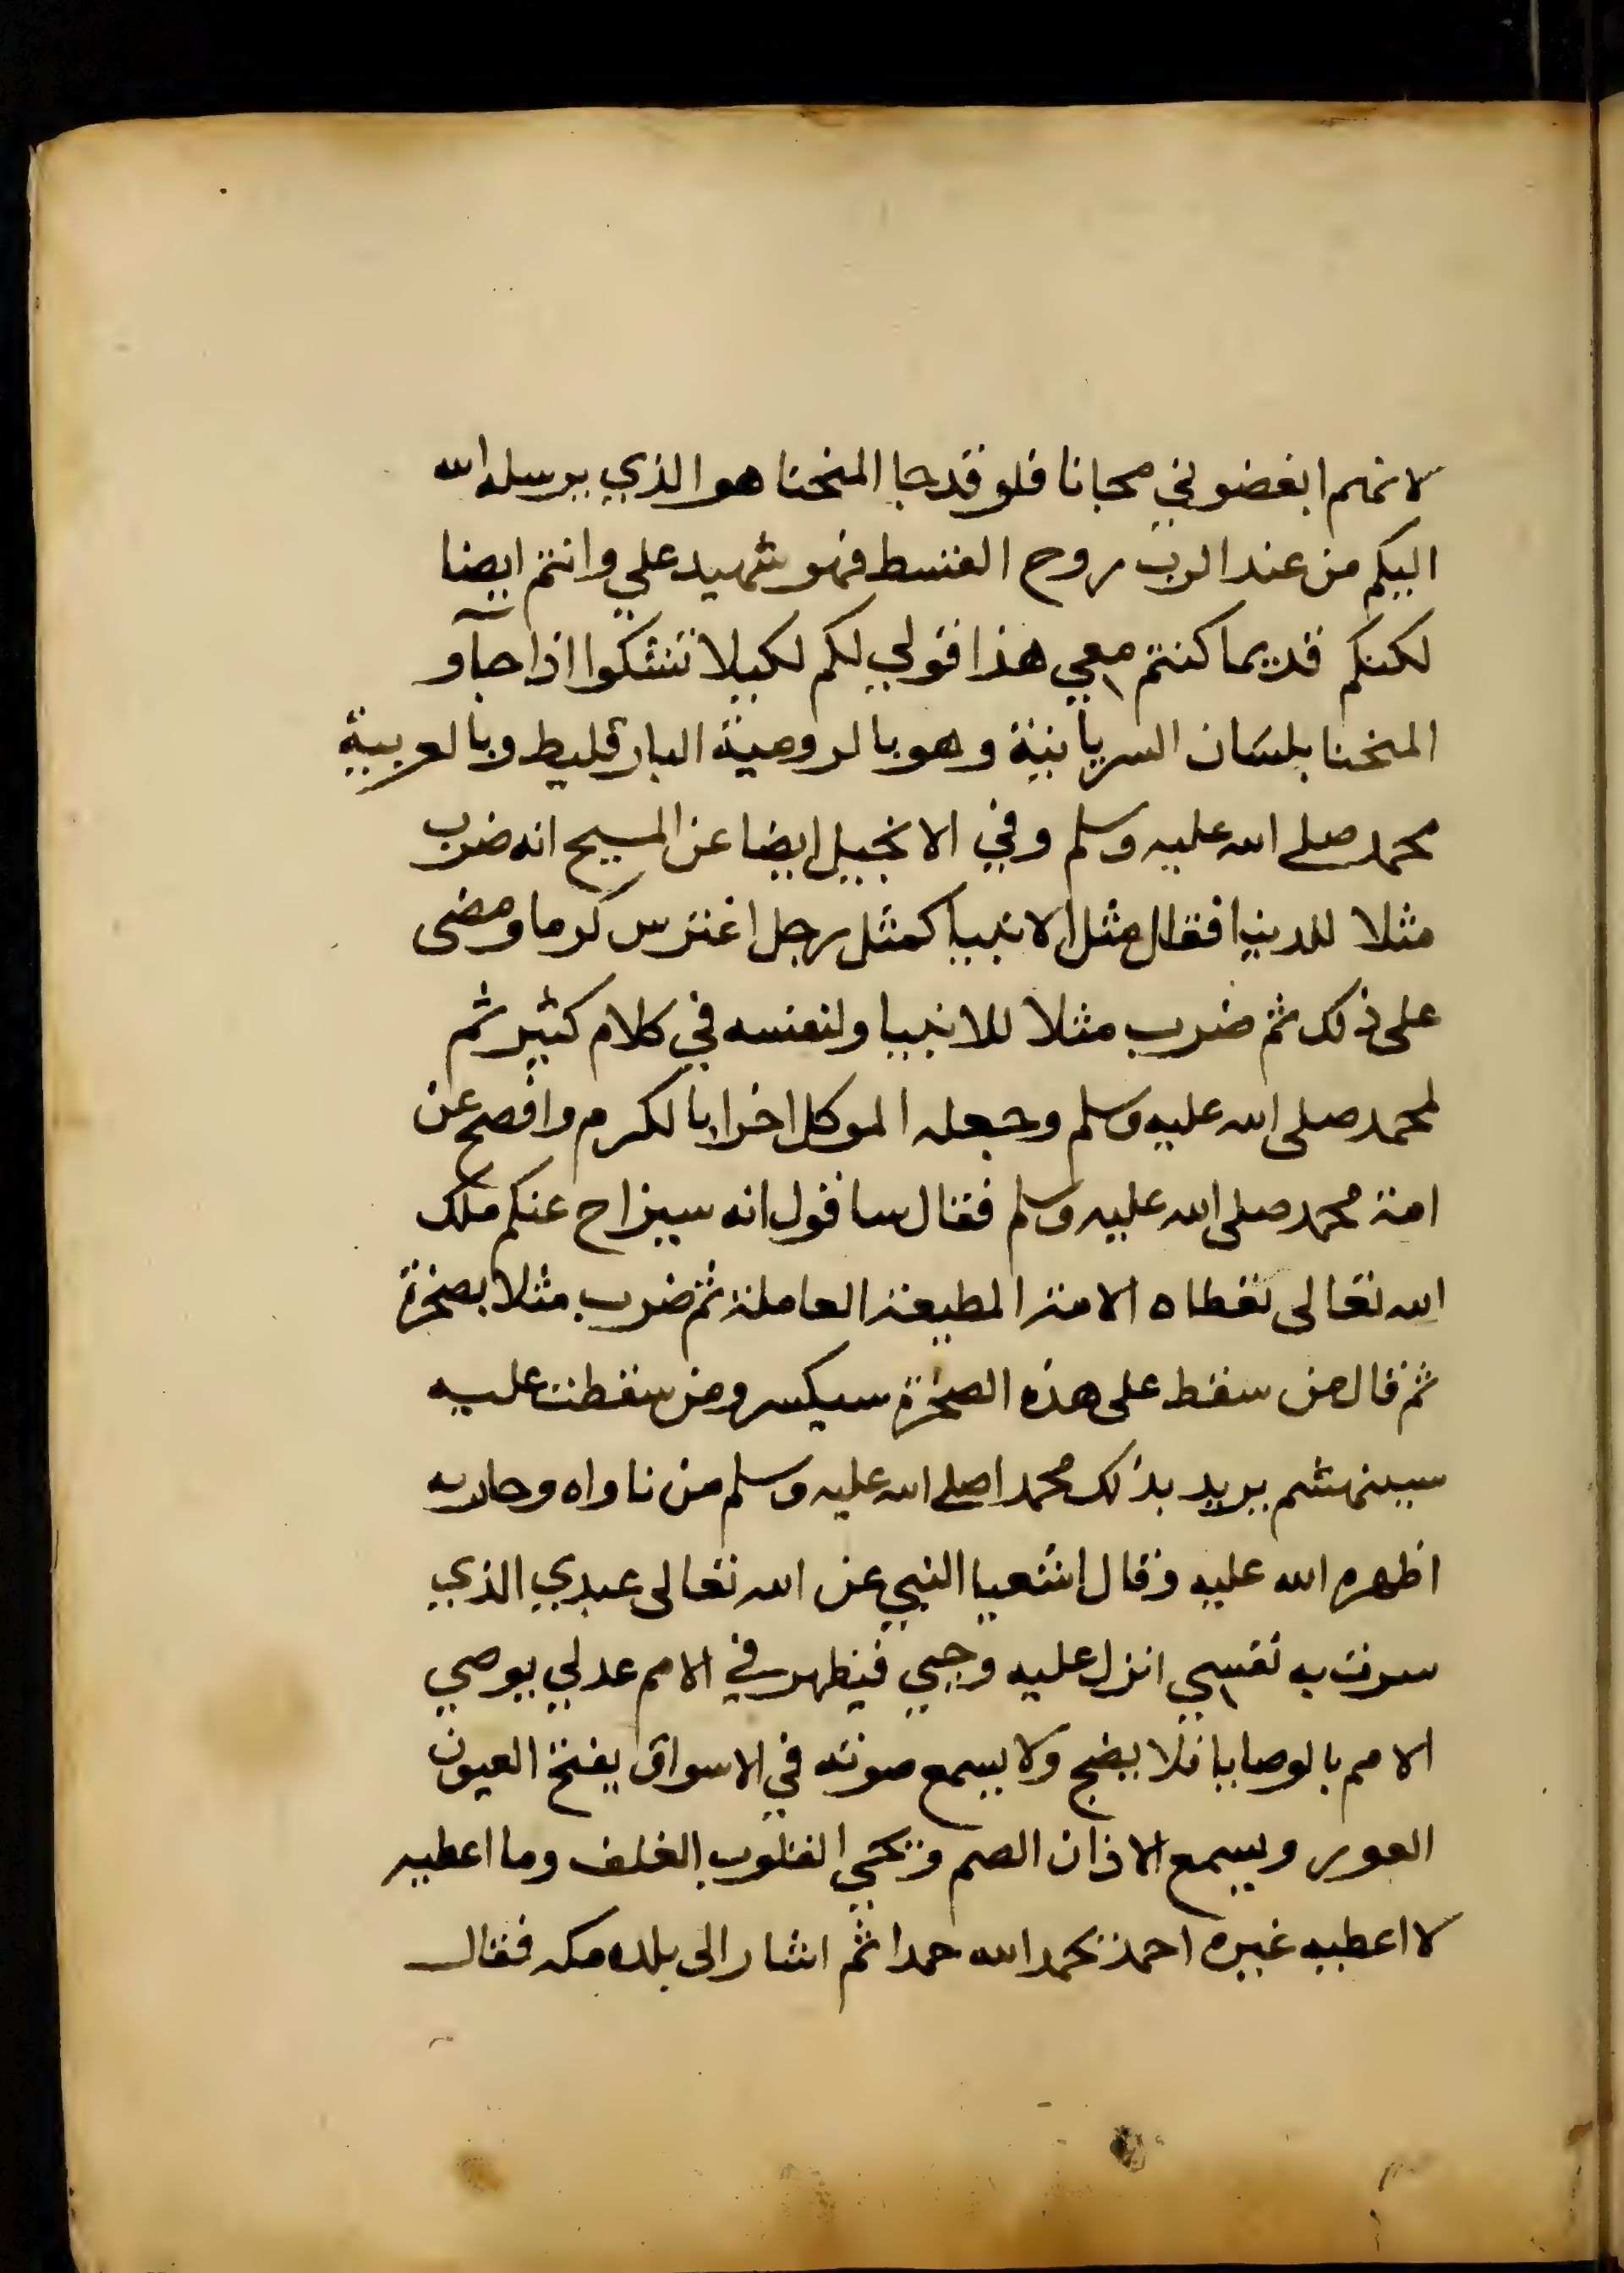 لانهم ابغضوني مجانا فلو قد جا المنحنا هو الذي يرسله الله
اليكم من عند الرب روح القسط فهو شهيد علي وانتم ايضا
لكنكم قديما كنتم معي هذا قولي لكم لكيلا تشكوا اذا جآو
المنحنا بلسان السريانية وهو بالرومية البارقليط وبالعربية
محمد صلى الله عليه وسلم وفي الانجيل ايضا عن المسيح انه ضرب
مثلا للدنيا فقال مثل الانبيا كمثل رجل اغترس كرما ومضى
على ذلك ثم ضرب مثلا للانبيا ولنفسه في كلام كثير ثم
لمحمد صلى الله عليه وسلم وجعله الموكل اخرا بالكرم وافصح عن
امة محمد صلى الله عليه وسلم فقال ساقول انه سيزاح عنكم ملك
الله تعالى تعطاه الامة المطيعة العاملة ثم ضرب مثلا بصخرة
ثم قال من سقط على هذه الصخرة سيكسر ومن سقطت عليه
سينهشم يريد بذلك محمدا صلى الله عليه وسلم من ناواه وحاربه
اظهره الله عليه وقال اشعيا النبي عن الله تعالى عبدي الذي
سرت به نفسي انزل عليه وحيي فيظهر في الامم عدلي يوصي
الامم بالوصايا فلا يضج ولا يسمع صوته في الاسواق يفتح العيون
العور ويسمع الاذان الصم ويحيي القلوب الغلف وما اعطيه
لا اعطيه غيره احمد يحمد الله حمدا ثم اشار الى بلده مكه فقال